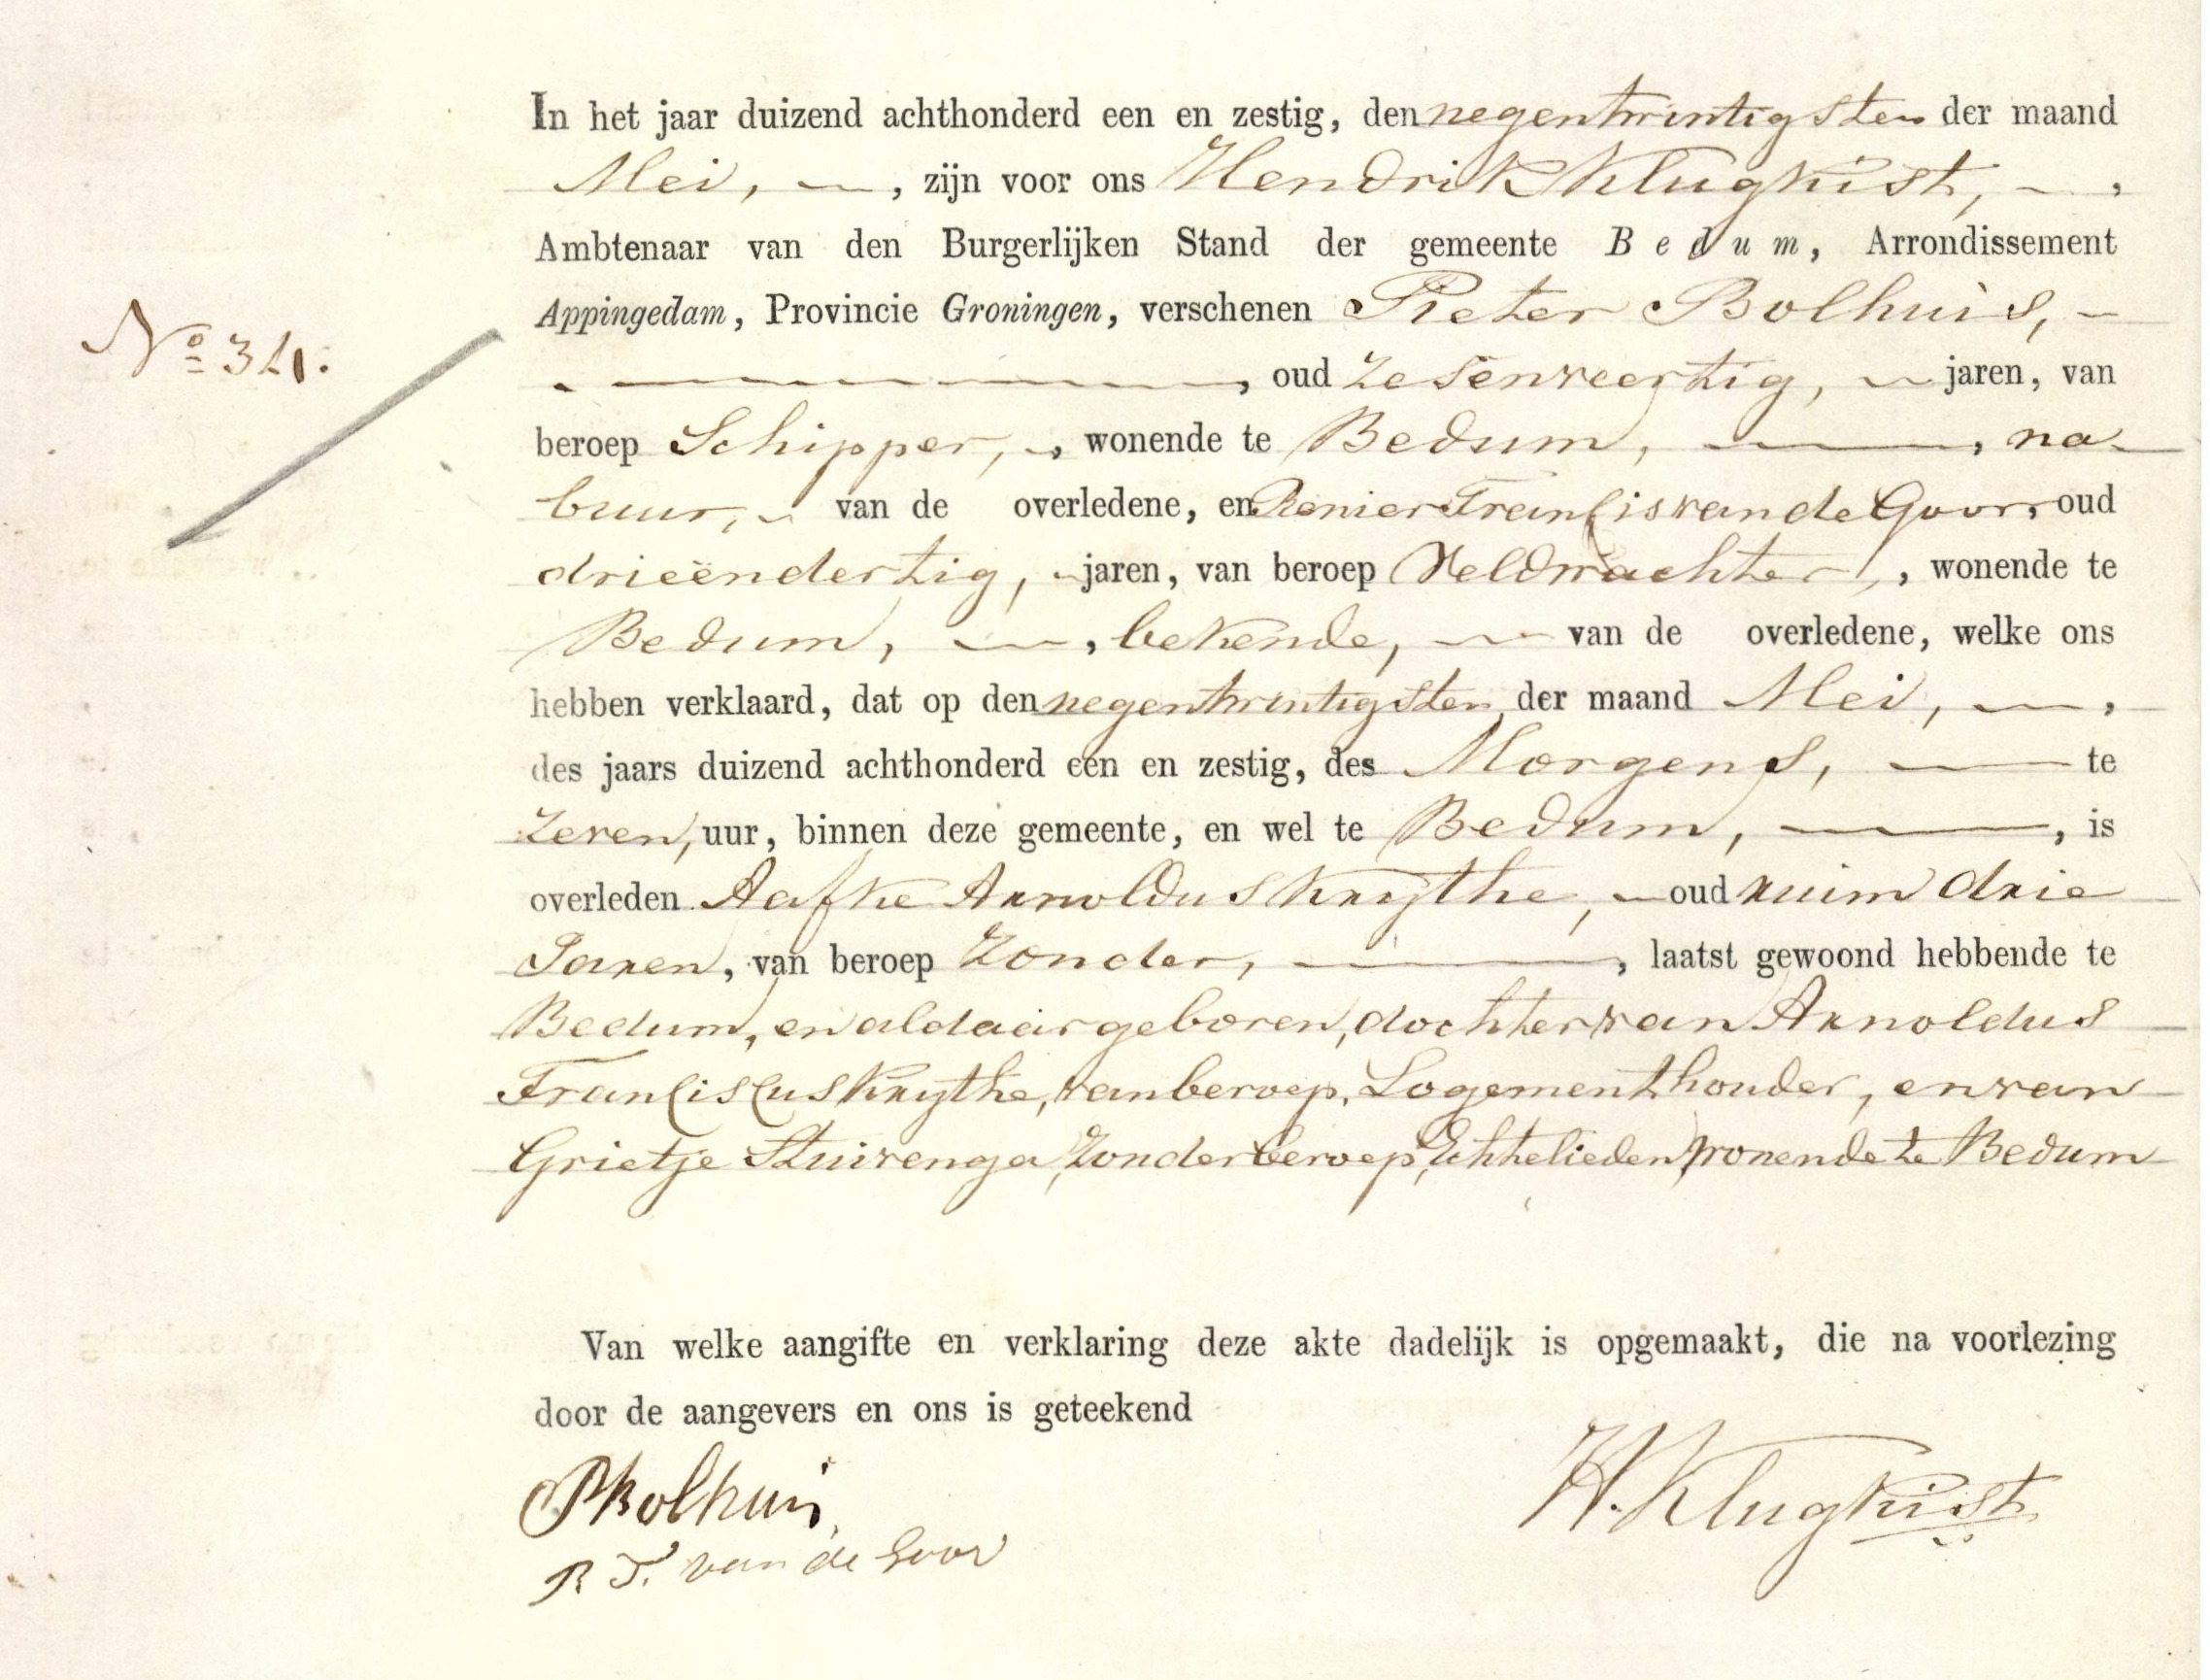 In het jaar duizend achthonderd een en zestig, den negentwintigsten der maand
Mei, —, zijn voor ons Hendrik Klugkist, —,
Ambtenaar van den Burgerlijken Stand der gemeente Bedum, Arrondissement
Appingedam, Provincie Groningen, verschenen Pieter Bolhuis, —
No 34.
—, oud Zesenveertig, — jaren, van
beroep Schipper, —, wonende te Bedum, —, na-
buur, — van de overledene, en Renier Francis van de Goor, oud
drieëndertig, — jaren, van beroep Veldwachter, wonende te
Bedum, —, bekende, — van de overledene, welke ons
hebben verklaard, dat op den negentwintigsten der maand Mei, —,
des jaars duizend achthonderd een en zestig, des Morgens, — te
Zeven, uur, binnen deze gemeente, en wel te Bedum, —, is
overleden Aafke Arnoldus Knijthe, — oud ruim drie
Jaren, van beroep Zonder, —, laatst gewoond hebbende te
Bedum, en aldaar geboren, dochter van Arnoldus
Franciscus Knijthe, van beroep, Logementhouder, en van
Grietje Stuivenga, Zonder beroep, Echtelieden wonende te Bedum
Van welke aangifte en verklaring deze akte dadelijk is opgemaakt, die na voorlezing
door de aangevers en ons is geteekend
PBolhuis
H. Klugkist
R F. van de Goor